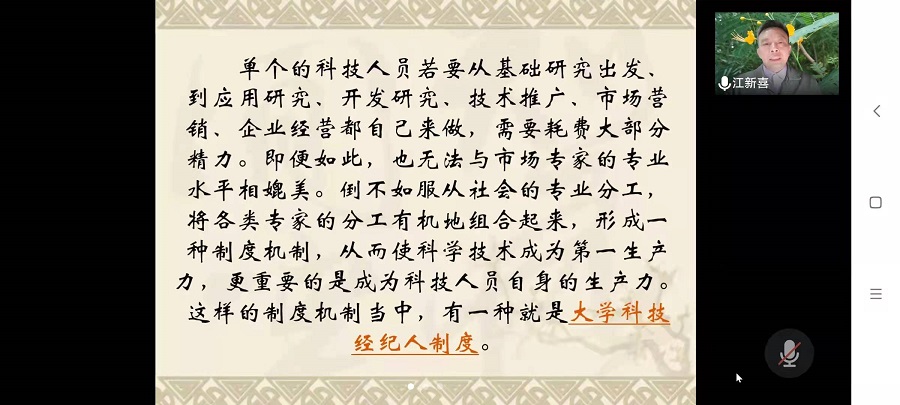 单个的科技人员若要从基础研究出发、
到应用研究、开发研究、技术推广、市场营
销、企业经营都自己来做，需要耗费大部分
精力。即便如此，也无法与市场专家的专业
水平相媲美。倒不如服从社会的专业分工，
将各类专家的分工有机地组合起来，形成一
种制度机制，从而使科学技术成为第一生产
力，更重要的是成为科技人员自身的生产力。
这样的制度机制当中，有一种就是大学科技
经纪人制度。
江新喜